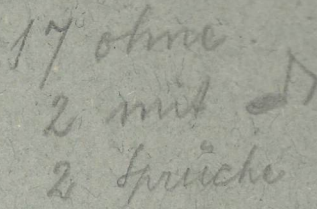 17 ohne.
2 mit ♪
2 Sprüche